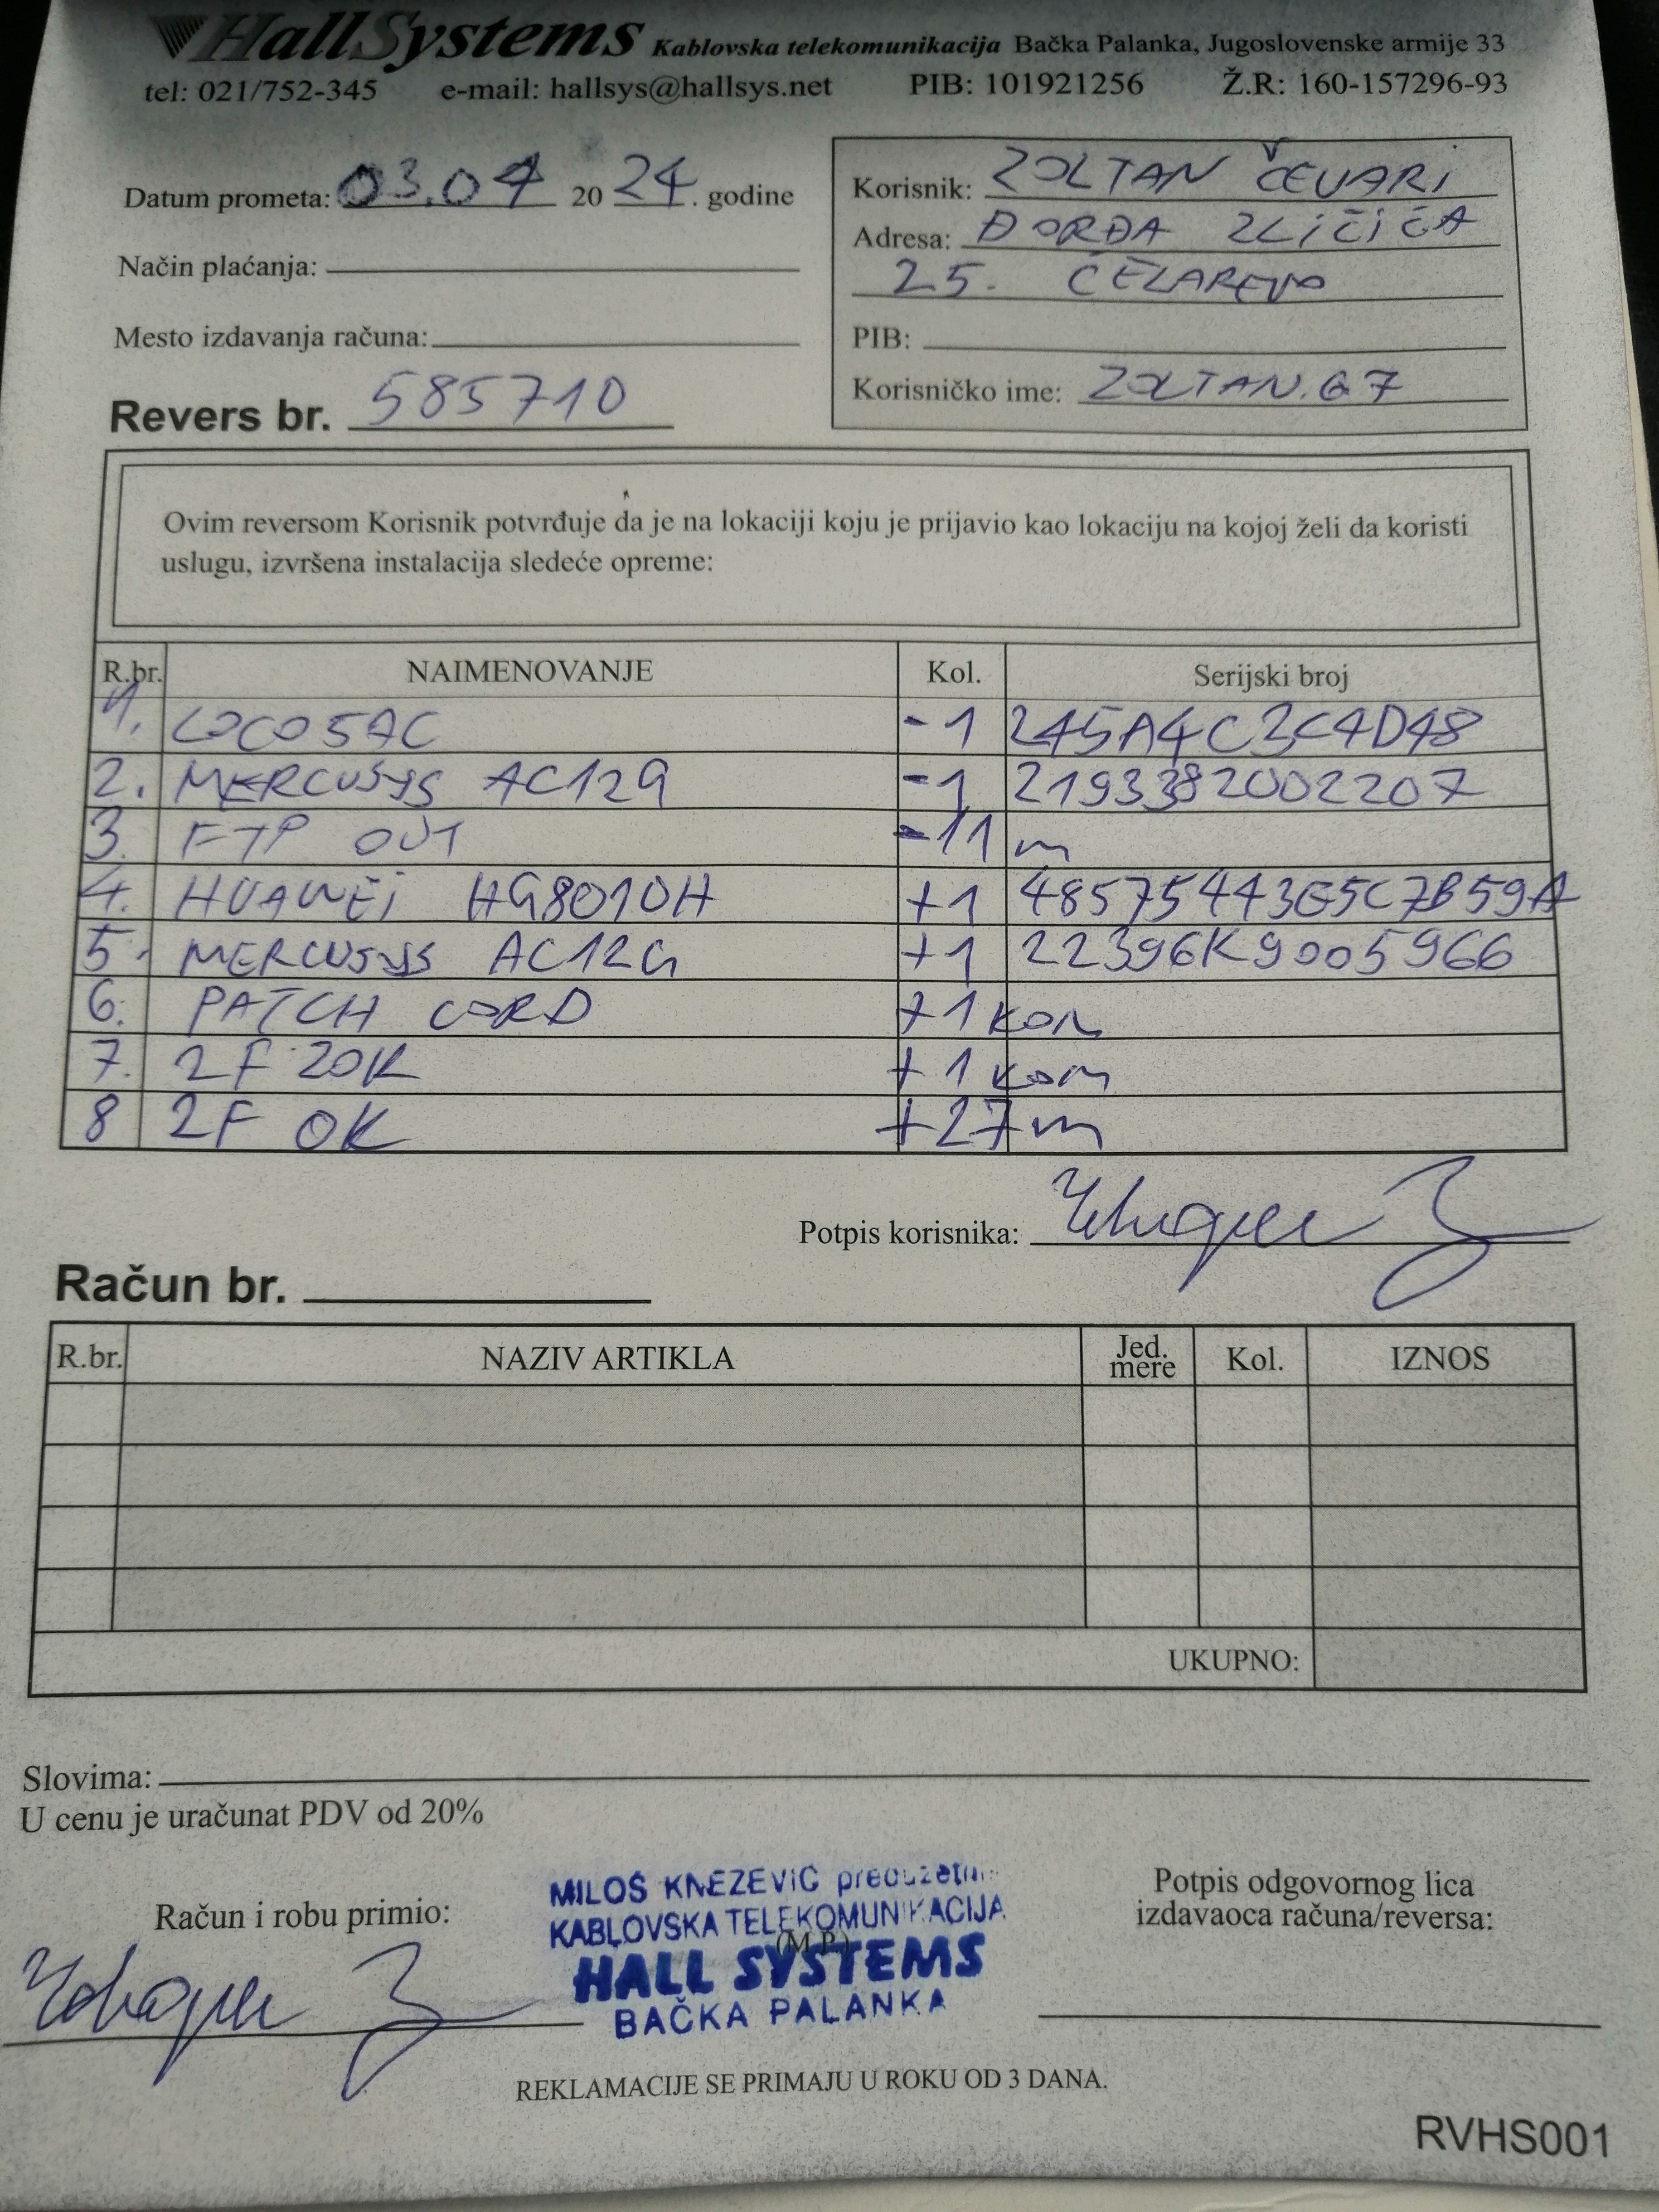 HallSystems Kablovska telekomunikacija Bačka Palanka, Jugoslovenske armije 33
tel: 021/752-345 e-mail: hallsys@hallsys.net PIB: 101921256 Ž.R: 160-157296-93
Datum prometa: 03.04 20 24. godine
Način plaćanja:
Mesto izdavanja računa:
Revers br. 585710
Korisnik: ZOLTAN ČEVARI
Adresa: ĐORĐA ZLIČIĆA
25. ČELAREVO
PIB:
Korisničko ime: ZOLTAN.67
Ovim reversom Korisnik potvrđuje da je na lokaciji koju je prijavio kao lokaciju na kojoj želi da koristi
uslugu, izvršena instalacija sledeće opreme:
R.br. NAIMENOVANJE Kol. Serijski broj
1. LOCO5AC -1 245A4C3C4D48
2. MERCUSYS AC12G -1 2193382002207
3. FTP OUT -11 m
4. HUAWEI HG8010H +1 48575443E5C7B59A
5. MERCUSYS AC12G +1 22396K9005966
6. PATCH CORD +1 kom
7. 2F ZOK +1 kom
8 2F OK +27m
Potpis korisnika:
Račun br.
R.br. NAZIV ARTIKLA Jed. mere Kol. IZNOS
UKUPNO:
Slovima:
U cenu je uračunat PDV od 20%
Račun i robu primio:
MILOŠ KNEZEVIC preduzetnik
KABLOVSKA TELEKOMUNIKACIJA
(M.P.)
HALL SYSTEMS
BAČKA PALANKA
Potpis odgovornog lica
izdavaoca računa/reversa:
REKLAMACIJE SE PRIMAJU U ROKU OD 3 DANA.
RVHS001